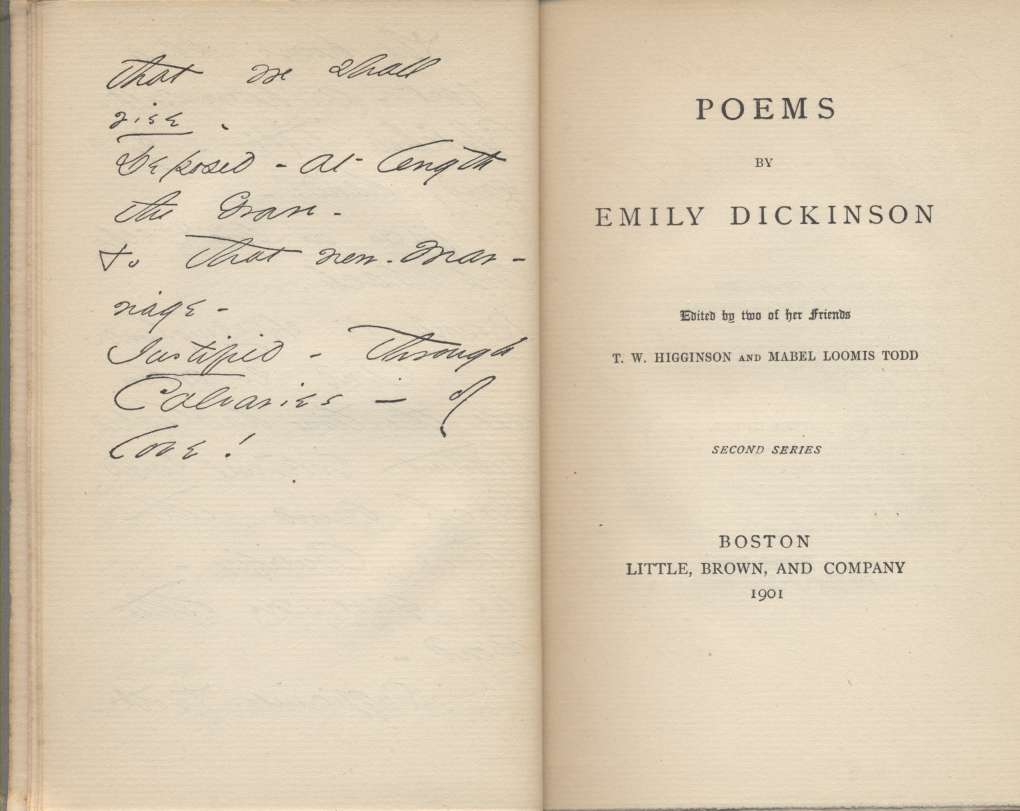 that we shall
rise .
Deposed - at length
the Grave -
+ to that new - Mar -
riage -
Justified - through
Calvaries - of
Love !
POEMS
BY
EMILY DICKINSON
Edited by two of her Friends
T. W. HIGGINSON AND MABEL LOOMIS TODD
SECOND SERIES
BOSTON
LITTLE, BROWN, AND COMPANY
1901